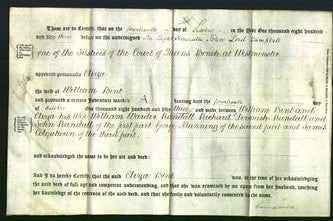 These are to Certify, that on the fourteenth day of in the Year One thousand eight hundred
and fifty three before me the undersigned The Right Honorable John Lord Campbell
one of the Justices of the Court of Queens Bench at Westminster
appeared personally Eliza
the wife of William Bent
and produced a certain Indenture marked A bearing date the fourteenth day
of three and made between William Bent and
Eliza his Wife William Randall Richard Randall and
John Randall of the first part George Manning of the second part and Samuel
of the third part
and acknowledged the same to be her act and deed:
And I do hereby Certify, that the said Eliza Bent was, at the time of her acknowledging
the said deed of full age and competent understanding, and that she was examined by me apart from her husband, touching
her knowledge of the contents of the said deed, and that she freely and voluntarily consented to the same.